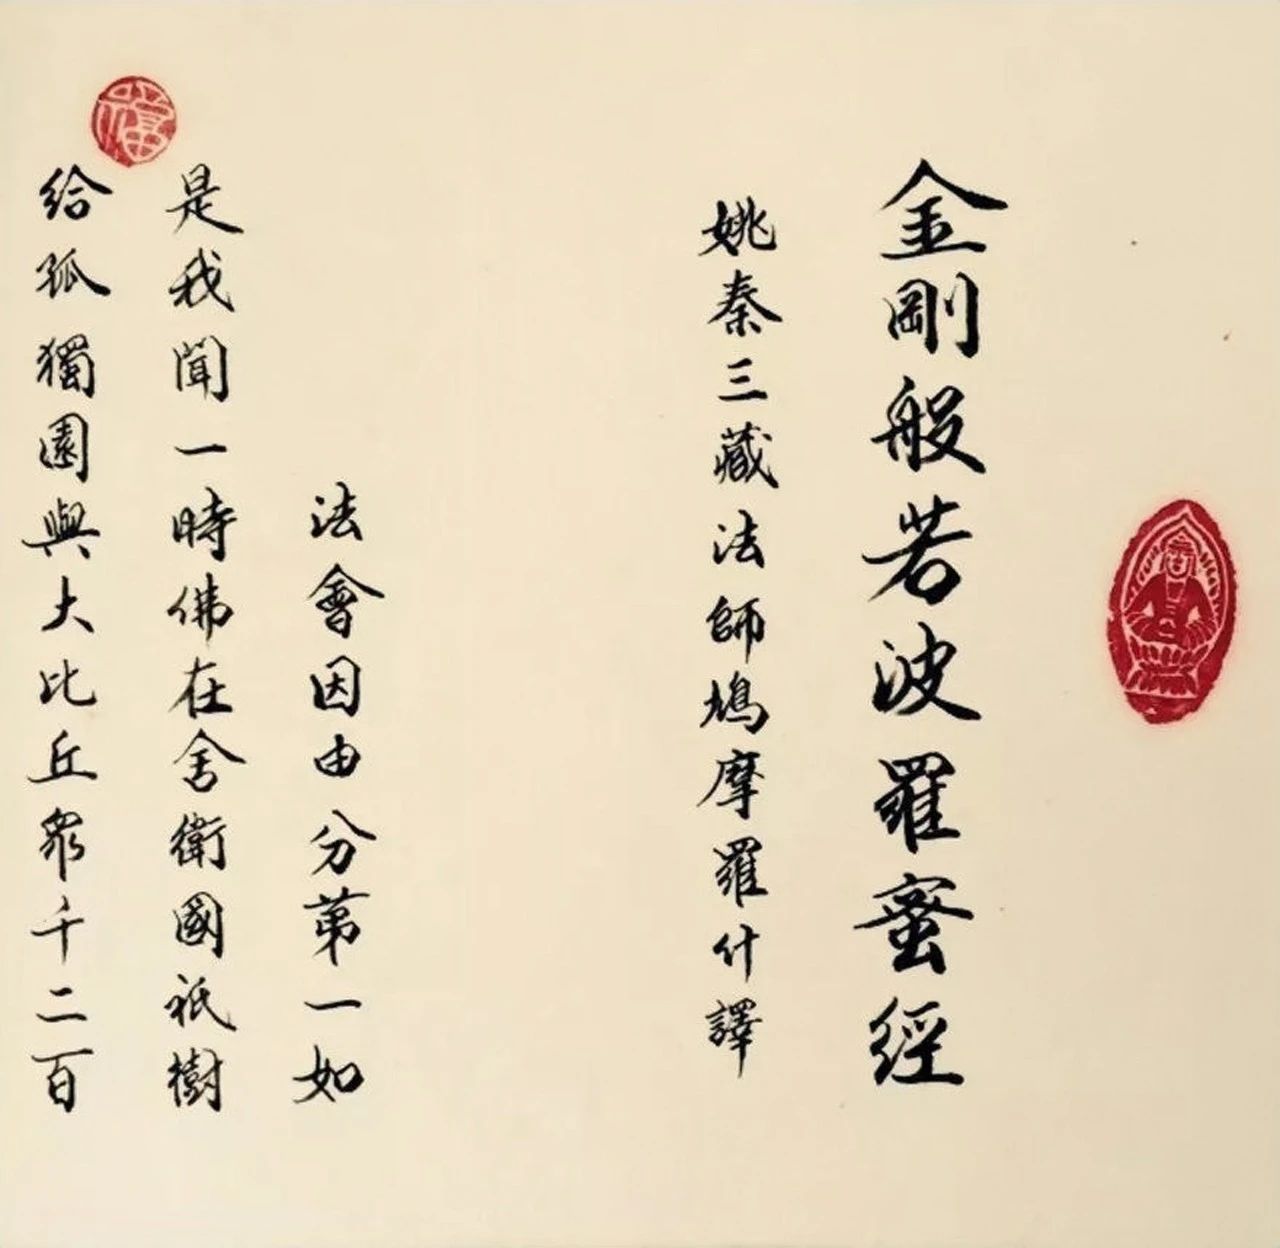 金剛般若波羅蜜經
姚秦三藏法師鳩摩羅什譯
法會因由分第一如
是我聞一時佛在舍衛國祇樹
給孤獨園與大比丘眾千二百
福